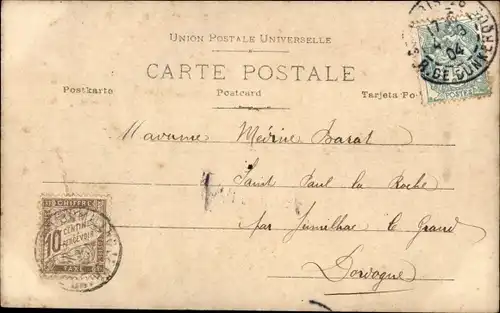 UNION POSTALE UNIVERSELLE
CARTE POSTALE
Postkarte Postcard Tarjeta Po
17
04
R. DE DUNKER
POSTES
Madame
Saint Paul la Roche
par Jumilhac le Grand
Dordogne
CHIFFRE
10
CENTIMES
A PERCEVOIR
TAXE